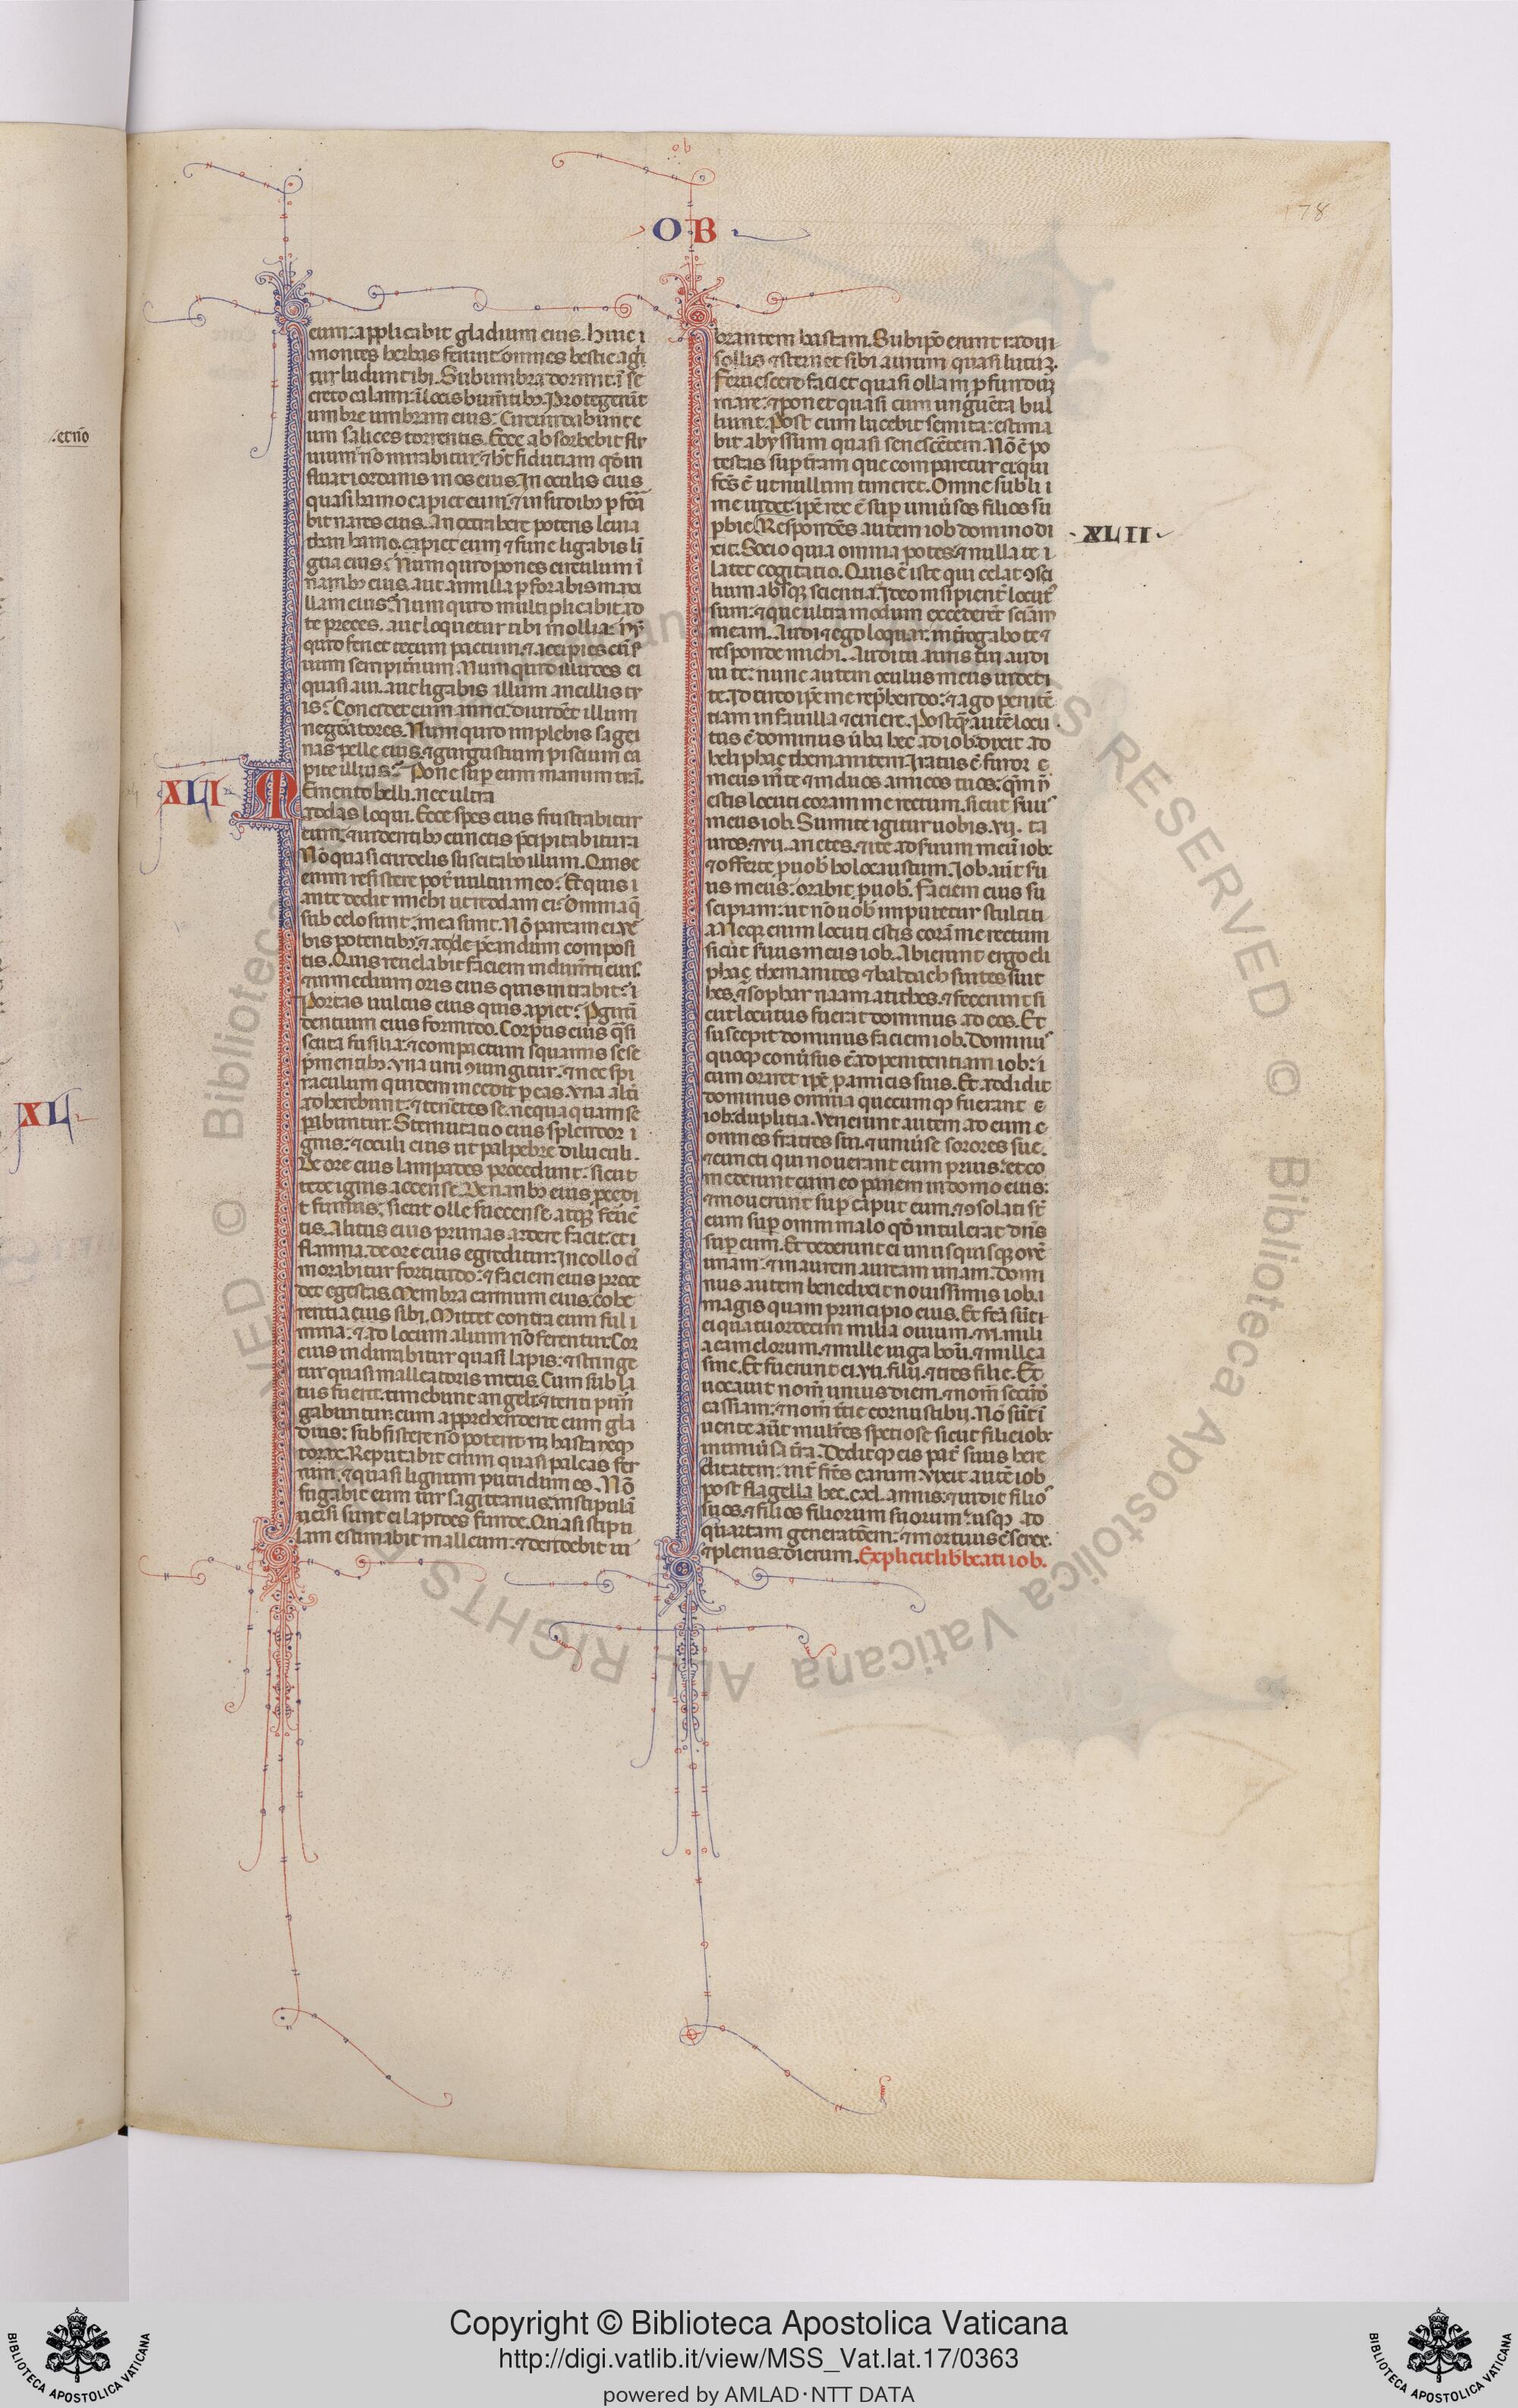 178
OB
.etnō
XL
eum: applicabit gladium eius. huic
montes herbas ferunt: omnes bestie agri
ludunt ibi. Sub umbra dormit: ī se
creto calami: ī locis humētibꝫ. Protegunt
umbre umbram eius: Circumdabunt e
um salices torrentis. Ecce absorbebit flu
uium ⁊ nō mirabitur: ⁊ hꝫ fiduciam qđ in
fluat iordanis in os eius. In oculis eius
quasi hamo capiet eum: ⁊ in sudibꝫ ꝑforā
bit nares eius. An extrahere poteris leuia
than hamo. capiet eum ⁊ fune ligabis lī
guā eius? Nunquid pones circulum ī
naribꝫ eius. aut armilla ꝑforabis maxi
llam eius? Nunquid multiplicabit ad
te preces. aut loquetur tibi mollia? Nū
quid feriet tecum pactum. ⁊ accipies eū ẜ
uum sempiternum. Nunquid illudes ei
quasi aui. aut ligabis illum ancillis tu
is? Concident eum amici. diuident illum
negociatores. Nunquid implebis sage
nas pelle eius. ⁊ gurgustium piscium ca
pite illius? Pone suꝑ eum manum tuā.
XLI
Memento belli. nec ultra
addas loqui. Ecce spes eius frustrabitur
eum: ⁊ uidentibꝫ cunctis p̄cipitabitur.
Nō quasi crudelis suscitabo illum. Quis e
enim resistere pot̄ uultui meo? Et quis
ante dedit michi ut reddam ei? Omnia q̄
sub celo sunt: mea sunt. Nō parcam ei ỹe
bis potentibꝫ: ⁊ ad deprecandum composi
tis. Quis reuelabit faciem indumēti eius.
⁊ in medium oris eius quis intrabit?
Portas uultus eius quis apiet? ꝑ girū
dentium eius formido. Corpus eius q̄si
scuta fusilia: ⁊ compactum squamis sese
p̄mentibꝫ. Una uni ꝯiungitur: ⁊ nec spi
raculum quidem incedit ꝑ eas. Una alt̄i
adherebunt: ⁊ tenētes se. nequaquam se
pabuntur. Sternutatio eius splendor i
gnis: ⁊ oculi eius ut palpebre diluculi.
De ore eius lampades procedunt: sicut
tede ignis accense. De naribꝫ eius p̄cedi
t fumus: sicut olle succense atqꝫ feruē
tis. Alitus eius prunas ardere facit: et
flamma de ore eius egreditur. In collo ei
morabitur fortitudo: ⁊ faciem eius prece
det egestas. Membra carnium eius cohe
rentia eius sibi. Mittet contra eum ful
mina: ⁊ ad locum alium nō ferentur. Cor
eius indurabitur quasi lapis: ⁊ stringe
tur quasi malleatoris incus. Cum subla
tus fuerit. timebunt angeli: ⁊ territi pur
gabuntur. cum apprehenderit eum gla
dius: subsistere nō poterit neqꝫ hasta neqꝫ
torax. Reputabit enim quasi paleas fer
rum. ⁊ quasi lignum putridum es. Nō
fugabit eum uir sagittarius: in stipulā
uersi sunt ei lapides funde. Quasi stipu
lam estimabit malleum: ⁊ deridebit ui
brantem hastam. Sub ip̄o erunt radii
sollis ⁊ sternet sibi aurum quasi lutuꝫ.
Feruescere faciet quasi ollam ꝓfunduꝫ
mare: ⁊ ponet quasi cum unguēta bul
liunt. Post eum lucebit semita: estima
bit abyssum quasi senescētem. Nō ē po
testas suꝑ t̄ram que comparetur ei. qui
fc̄s ē ut nullum timeret. Omne subli
me uidet: ip̄e rex ē suꝑ uniūsos filios su
XLII
pbie. Respondēs autem iob domino di
xit. Scio quia omnia potes: ⁊ nulla te
latet cogitatio. Quis ē iste qui celat ꝯsi
lium absqꝫ scientia? Ideo insipient̄ locut9
sum: ⁊ que ultra modum excederēt sciām
meam. Audi ⁊ ego loquar. int̄rogabo te ⁊
responde michi. Auditu auris tui audi
ui te: nunc autem oculus meus uidet
te. Idcirco ip̄e me rep̄hendo: ⁊ ago penitē
tiam in fauilla ⁊ cinere. Postq̄ autē locu
tus ē dominus ūba hec ad iob: dixit ad
heliphaç themanitem. Iratus ē furor
meus in te ⁊ in duos amicos tuos: qm̄ nō
estis locuti coram me rectum. sicut ẜuus
meus iob. Sumite igitur uobis .vii. ta
uros. ⁊ vii. arietes. ⁊ ite ad seruum meū iob:
⁊ offerte ꝓ uob̄ holocaustum. Iob aūt ẜu
us meus: orabit ꝓ uob̄. Faciem eius su
scipiam: ut nō uob̄ imputetur stulti
a Neqꝫ enim locuti estis corā me rectum
sicut ẜuus meus iob. Abierunt ergo eli
phaç themanites ⁊ baldach suites siue
hes. ⁊ sophar naamatithes. ⁊ fecerunt si
cut locutus fuerat dominus ad eos. Et
suscepit dominus faciem iob. Dominus
quoqꝫ conūsus ē ad penitentiam iob:
cum oraret ip̄e ꝓ amicis suis. Et addidit
dominus omnia quecumqꝫ fuerant
iob: duplicia. Venerunt autem ad eum
omnes fratres sui. ⁊ uniūse sorores sue.
⁊ cuncti qui nouerant eum prius: et co
mederunt cum eo panem in domo eius:
⁊ mouerunt suꝑ caput eum. ⁊ ꝯsolati st̄
eum suꝑ omni malo qđ intulerat dn̄s
suꝑ eum. Et dederunt ei unusquisqꝫ ouē
unam: ⁊ inaurem auream unam. Domi
nus autem benedixit nouissimis iob.
magis quam principio eius. Et fc̄a sūt
ei quatuordecim milia ouium. ⁊ vi. mili
a camelorum. ⁊ mille iuga boū. ⁊ mille a
sine. Et fuerunt ei .vii. filii. ⁊ tres filie. Et
uocauit nom̄ unius diem. ⁊ nom̄ secūde
cassiam: ⁊ nom̄ t̄cie cornustibii. Nō sūt ī
uente aūt mulieres speciose sicut filie iob:
in uniūsa t̄ra. Deditqꝫ eis pat̄ suus here
ditatem: int̄ fr̄es earum. Vixit autē iob
post flagella hec. cxl. annis: ⁊ uidit filios
suos. ⁊ filios filiorum suorum: usqꝫ ad
quartam generatōem: ⁊ mortuus ē senex.
⁊ plenus dierum. Explicit lib̄ beati iob.
Copyright © Biblioteca Apostolica Vaticana
http://digi.vatlib.it/view/MSS_Vat.lat.17/0363
powered by AMLAD·NTT DATA
BIBLIOTECA APOSTOLICA VATICANA
BIBLIOTECA APOSTOLICA VATICANA